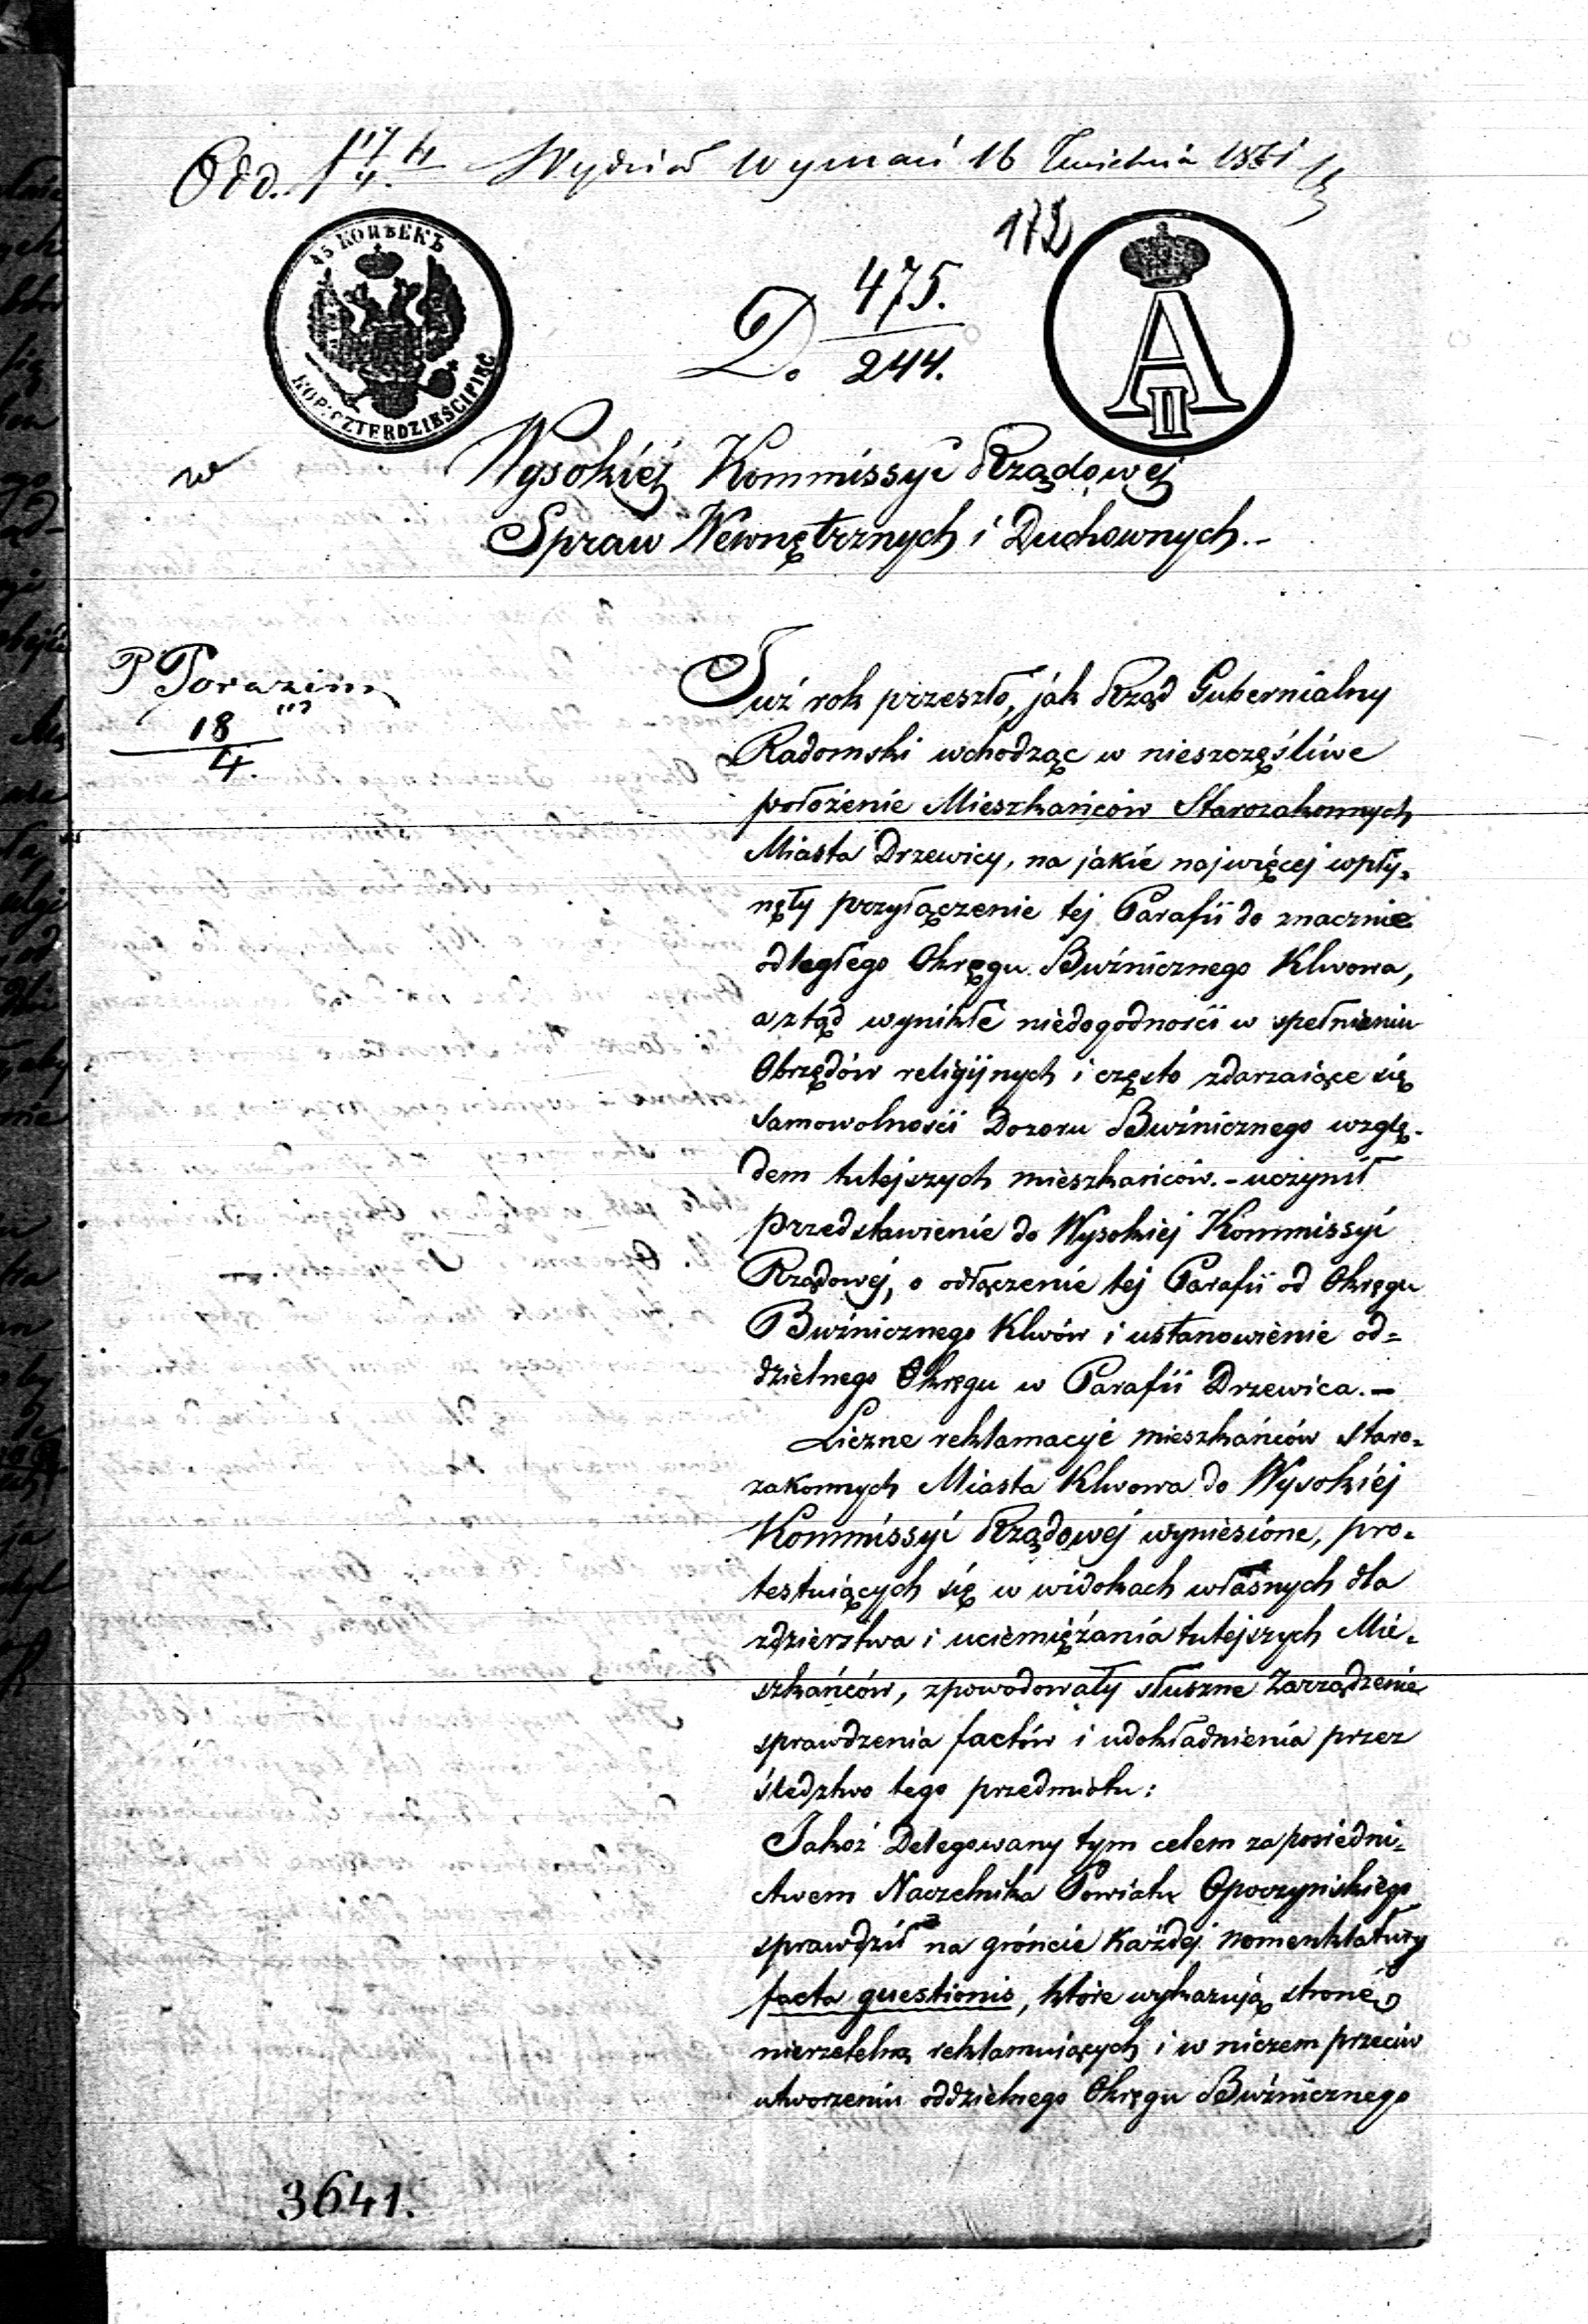 Odd. 17/4 Wydział Wyznań 16 Kwietnia 1861
45 КОПѢЕКЪ
KOP: CZTERDZIEŚCI PIĘĆ
172
D. 475.
244.
A II
w
Wysokiéj Kommissyi Rządowéj
Spraw Wewnętrznych i Duchownych.-
P Porazim
18
4.
Już rok przeszło, jak Rząd Gubernialny
Radomski wchodząc w nieszczęśliwe
położenie Mieszkańców Starozakonnych
Miasta Drzewicy, na jakie najwięcej wpły=
nęły przyłączenie tej Parafii do znacznie
odległego Okręgu Bużnicznego Klwowa,
a ztąd wynikłe niedogodności w spełnieniu
Obrzędów religijnych i często zdarzaiące się
samowolności Dozoru Bużnicznego wzglę-
dem tutejszych mieszkańców.- uczynił
przedstawienie do Wysokiej Kommissyi
Rządowéj, o odłączenie tej Parafii od Okręgu
Bużnicznego Klwów i ustanowienie od=
dzielnego Okręgu w Parafii Drzewica.-
Liczne reklamacyje mieszkańców staro=
zakonnych Miasta Klwowa do Wysokiéj
Kommissyi Rządowej wyniesione, pro=
testuiących się w widokach własnych dla
zdzierstwa i uciemiężania tutejszych Mie=
szkańców, zpowodowały słuszne Zarządzenie
sprawdzenia factów i udokładnienia przez
śledztwo tego przedmiotu:
Jakoż Delegowany tym celem za pośredni=
ctwem Naczelnika Powiatu Opoczyńskiego
sprawdził na gróncie każdej nomenklatury
facta questionis, które wykazują stronę
nierzetelną reklamuiących i w niczem przeciw
utworzeniu oddzielnego Okręgu Bużnicznego
3641.